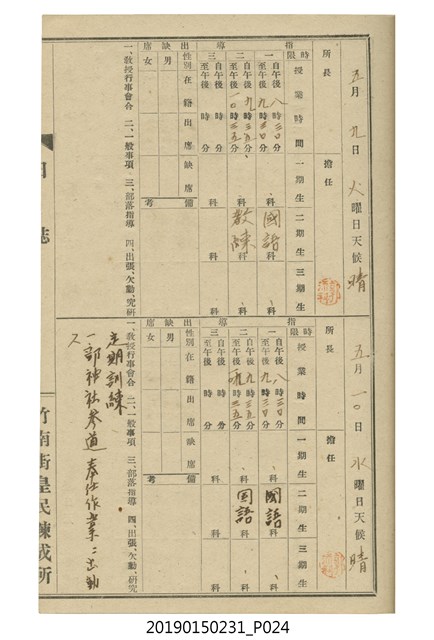 五月九日 火曜日 天候 晴
所長
擔任
時限 授業時間 一期生 二期生 三期生
指導
一 自午後八時三〇分 至午後九時 分 科 國語 科 科
二 自午後九時 分 科 教練 科 科
三 自午後 時 分 至午後 時 分 科 科 科
出缺席
性別 在籍 出席 缺席 備考
男
女
一、教授行事會合 二、一般事項 三、部落指導 四、出張、欠勤、研究
五月一〇日 水曜日 天候 晴
所長
擔任
時限 授業時間 一期生 二期生 三期生
指導
一 自午後八時三〇分 至午後九時 分 科 國語 科 科
二 自午後九時 分 科 国語 科 科
三 自午後 時 分 至午後 時 分 科 科 科
出缺席
性別 在籍 出席 缺席 備考
男
女
一、教授行事會合 二、一般事項 三、部落指導 四、出張、欠勤、研究
定期訓練
一部神社参道奉仕作業ニ出動
ス
日誌
竹南街皇民鍊成所
20190150231_P024